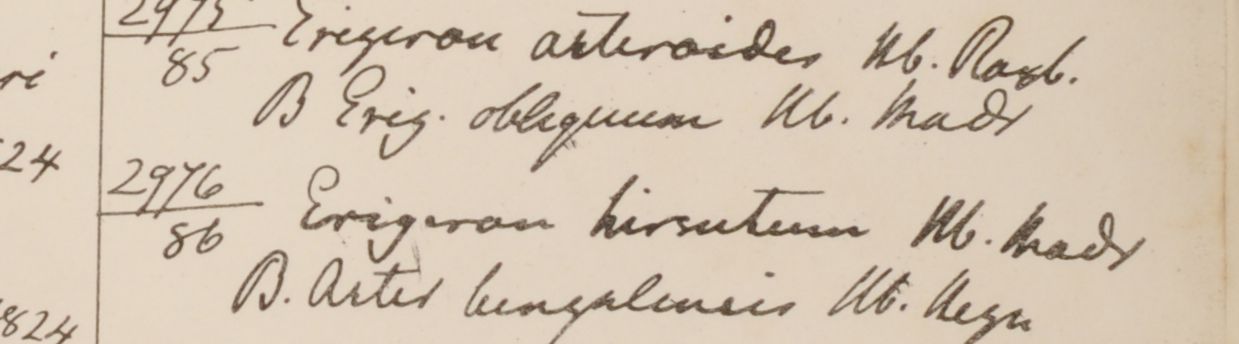 2975 Erigeron asteroides Hb. Roxb.
85
B Erig. obliquum Hb. Madr
2976 Erigeron hirsutum Hb. Madr
86
B. Aster bengalensis Hb. Heyn
ri
24
824